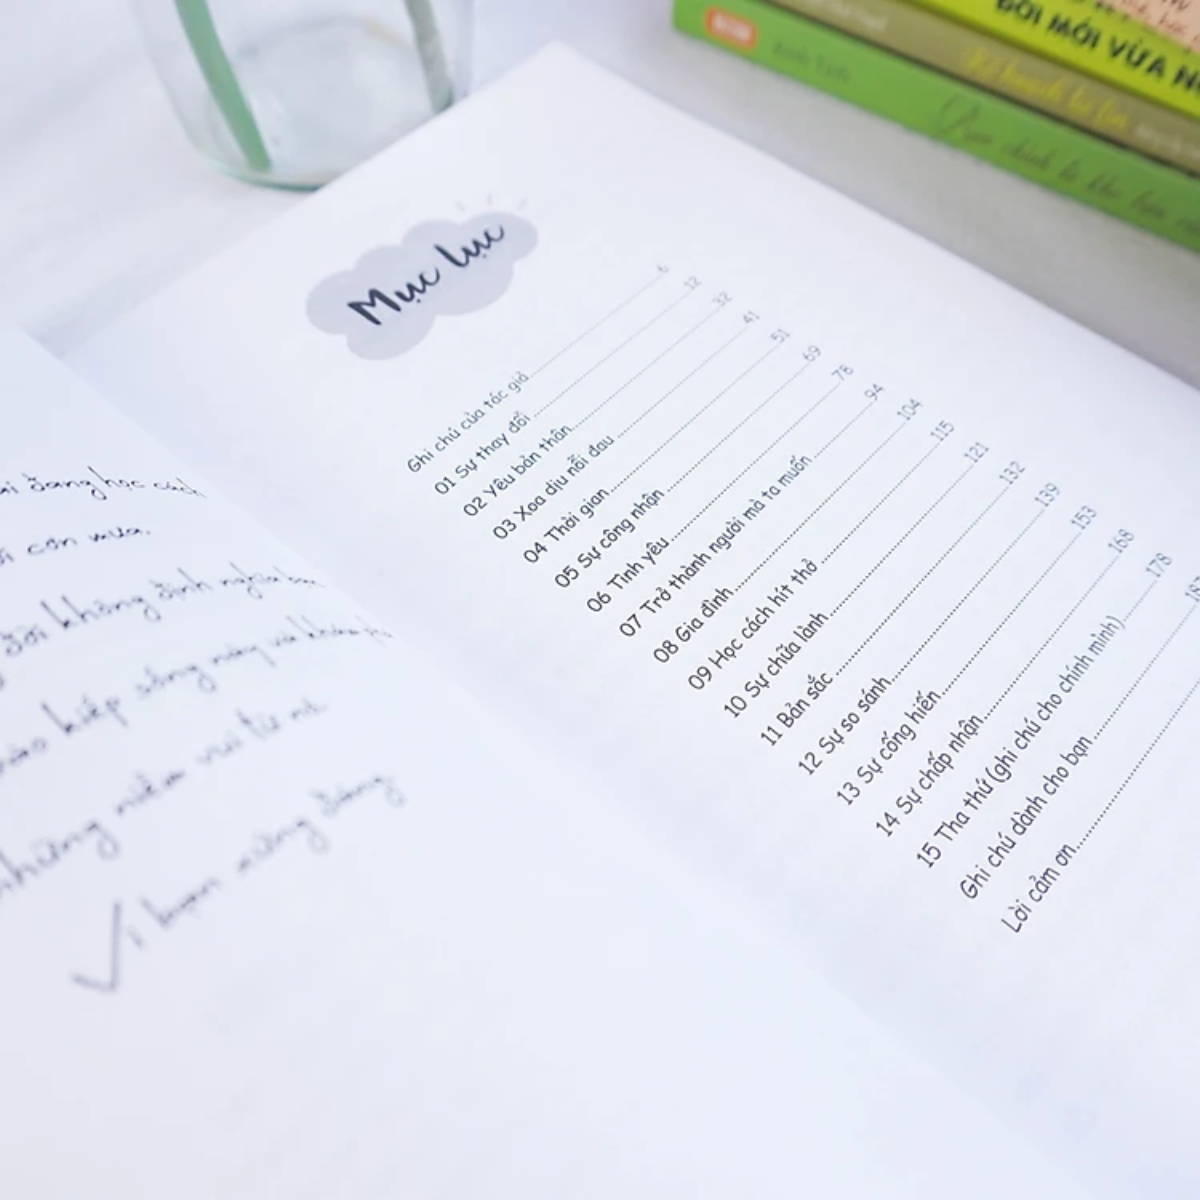 ĐỜI MỚI VỪA
ai đang học cách
cơn mưa.
đời không định nghĩa bạn
vào kiếp sống này và khám
những niềm vui từ nó
Vì bạn xứng đáng
Mục lục
Ghi chú của tác giả........6
01 Sự thay đổi........12
02 Yêu bản thân........32
03 Xoa dịu nỗi đau........41
04 Thời gian........51
05 Sự công nhận........69
06 Tình yêu........78
07 Trở thành người mà ta muốn........94
08 Gia đình........104
09 Học cách hít thở........115
10 Sự chữa lành........121
11 Bản sắc........132
12 Sự so sánh........139
13 Sự cống hiến........153
14 Sự chấp nhận........168
15 Tha thứ (ghi chú cho chính mình)........178
Ghi chú dành cho bạn........
Lời cảm ơn........